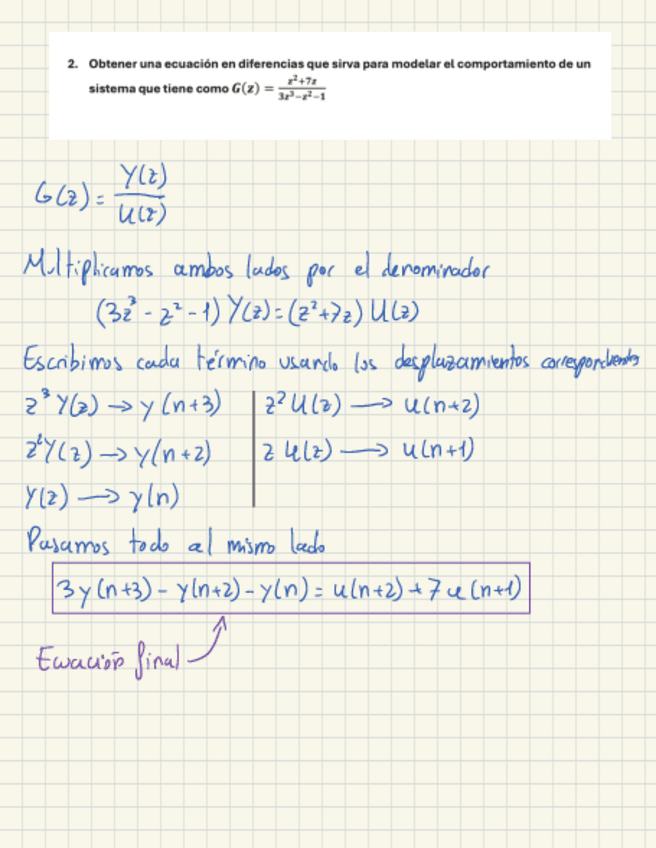 2. Obtener una ecuación en diferencias que sirva para modelar el comportamiento de un
sistema que tiene como G(z) = (z²+7z)/(3z³−z²−1)
G(z) = Y(z)/U(z)
Multiplicamos ambos lados por el denominador
(3z³ - z² - 1) Y(z) = (z² + 7z) U(z)
Escribimos cada término usando los desplazamientos correspondientes
z³ Y(z) → y(n+3) | z² U(z) → u(n+2)
z² Y(z) → y(n+2) | z U(z) → u(n+1)
Y(z) → y(n)
Pasamos todo al mismo lado
3y(n+3) - y(n+2) - y(n) = u(n+2) + 7u(n+1)
Ecuación final